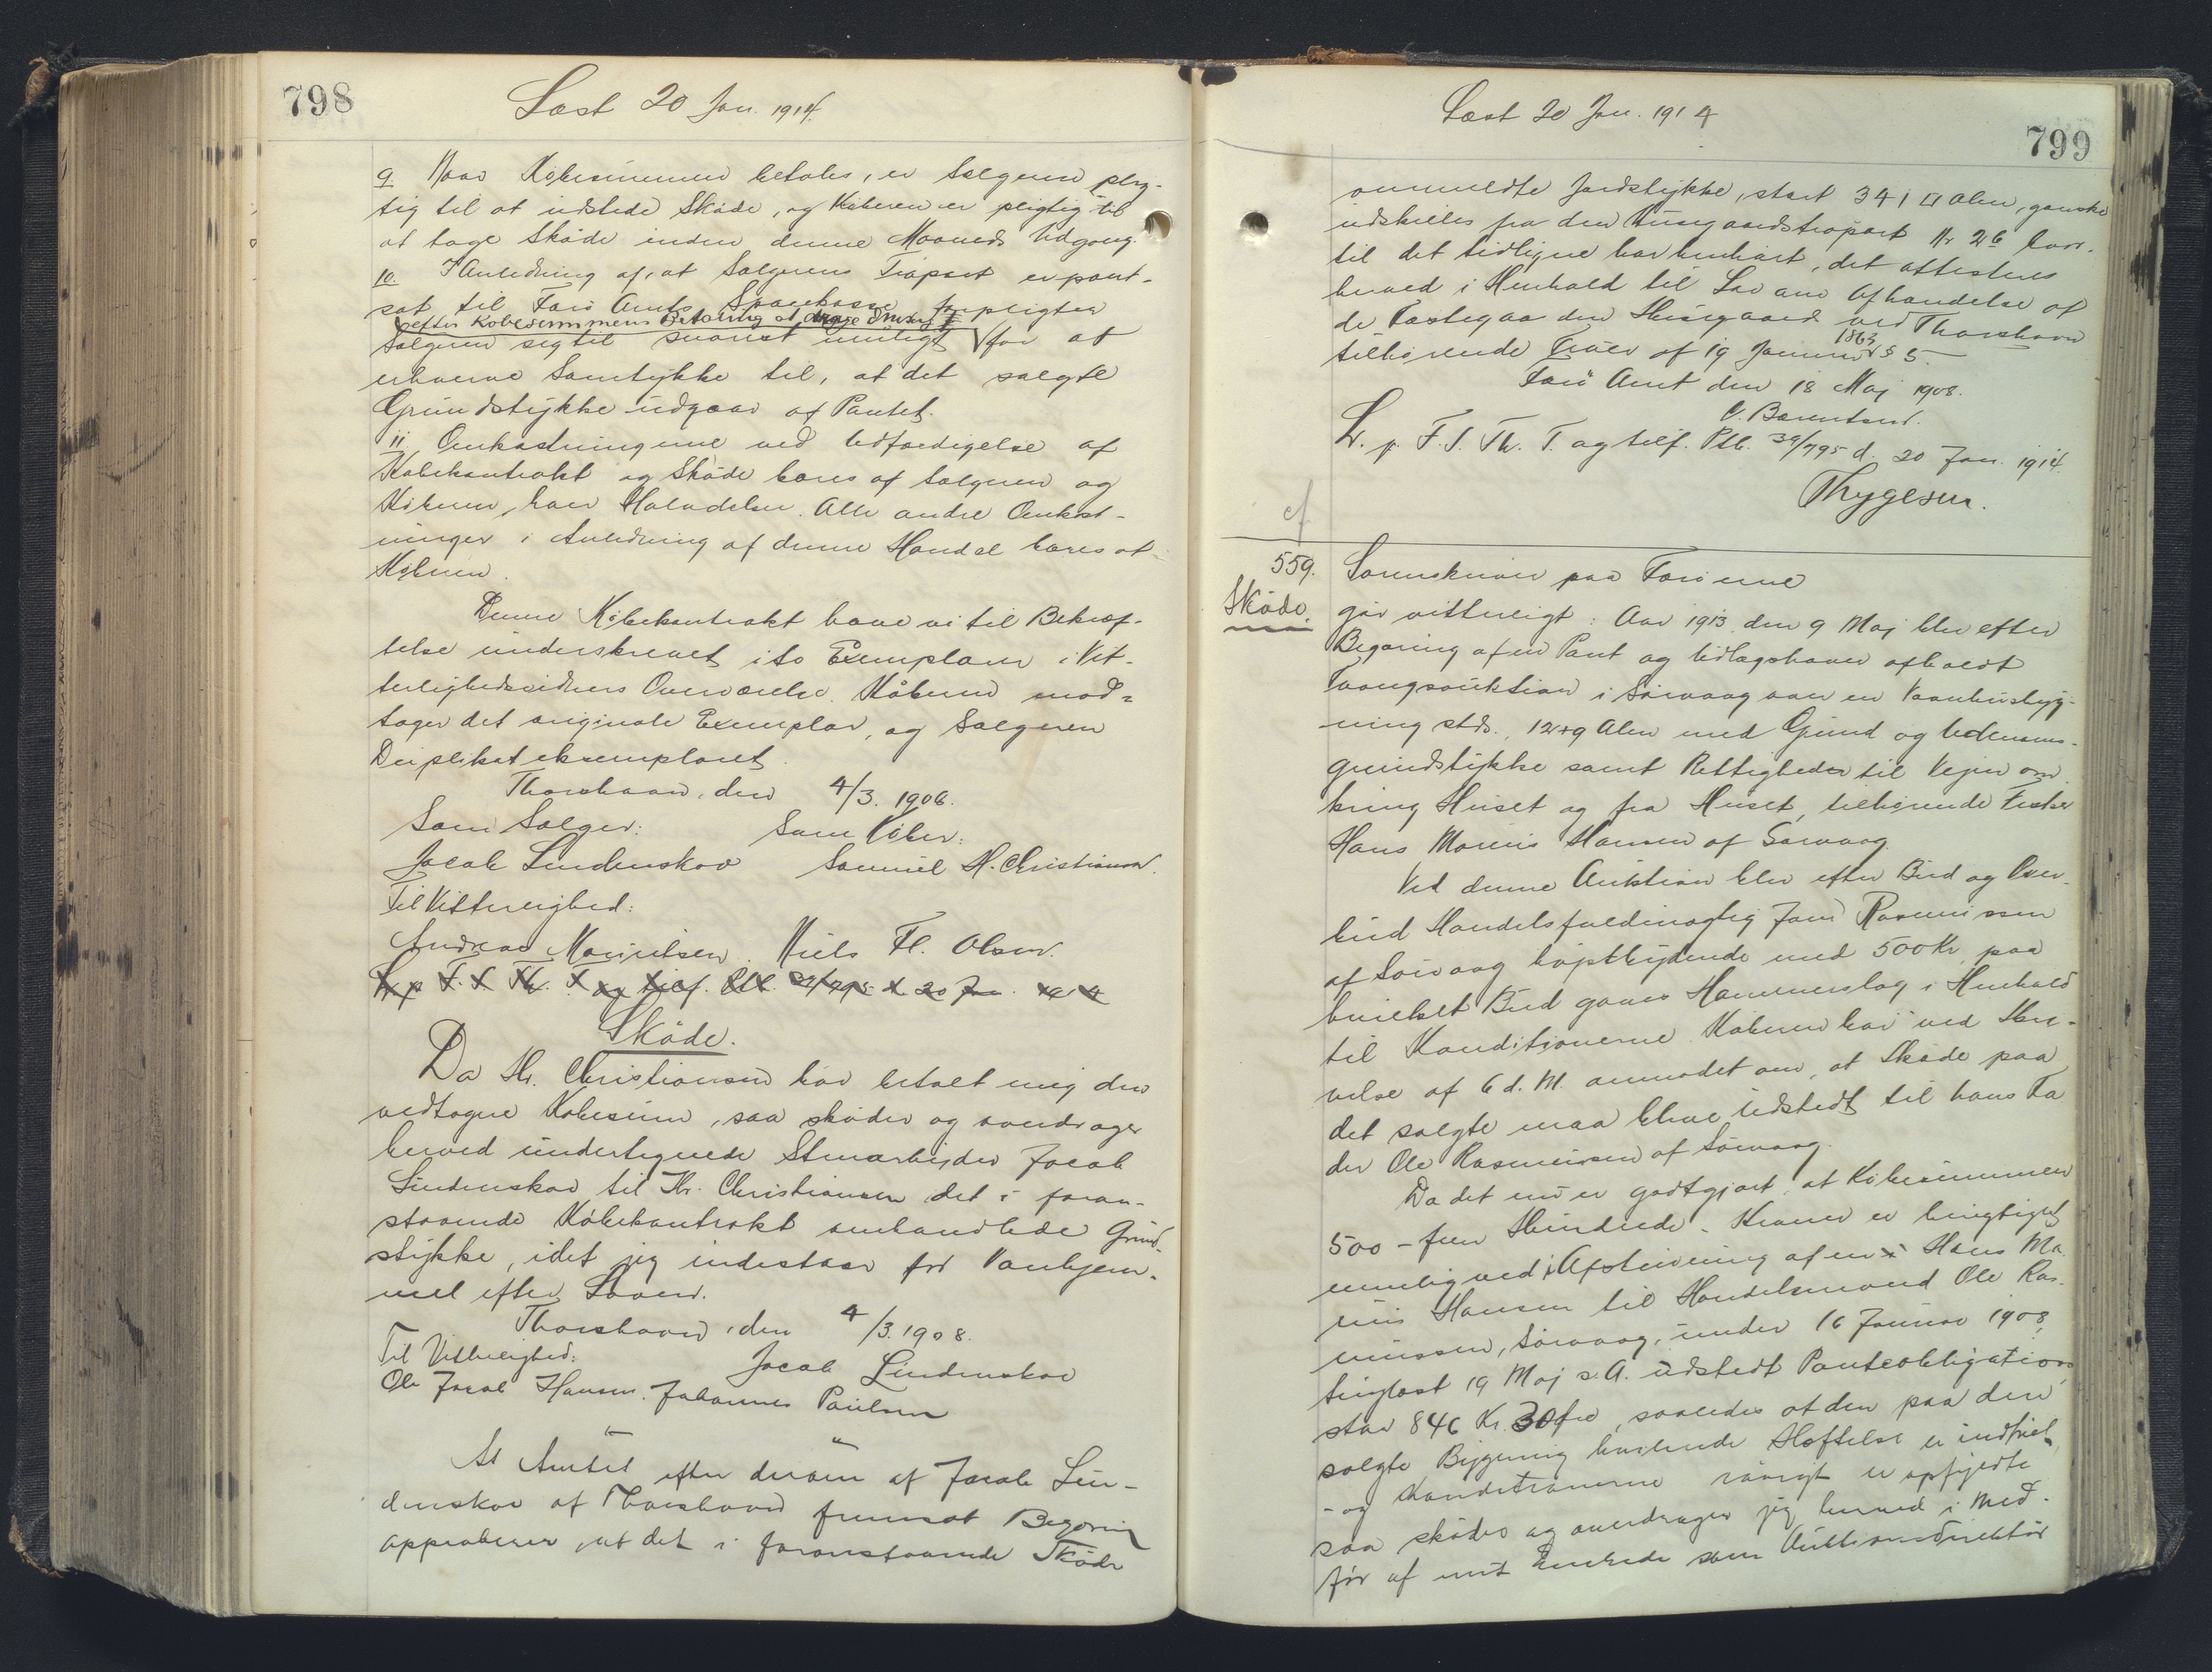 798
Læst 20 Jan. 1914.
9. Naar Købesummen betales, er Sælgeren plig-
tig til at udstede Skøde, og Køberen er pligtig til
at tage Skøde inden denne Maaneds Udgang.
10. I Anledning af, at Sælgerens Trapart er pant-
sat til Færø Amts Sparekasse forpligter
efter Købesummens Betaling at drage Omsorg
Sælgeren sig til snarest muligt for at
erhverve Samtykke til, at det solgte
Grundstykke udgaar af Pantet.
11. Omkostningerne ved Udfærdigelse af
Købekontrakt og Skøde bæres af Sælgeren og
Køberen, hver Halvdelen. Alle andre Omkost-
ninger i Anledning af denne Handel bæres af
Køberen.
Denne Købekontrakt have vi til Bekræf-
telse underskrevet i to Exemplarer i Vit-
terlighedsvidners Overværelse. Køberen mod-
tager det originale Exemplar, og Sælgeren
Duplikateksemplaret.
Thorshavn, den 4/3. 1908.
Som Sælger: Som Køber:
Jacob Lindenskov Samuel H. Christiansen.
Til Vitterlighed:
Andreas Mouritsen. Niels Fl. Olsen.
L. p. F. S. Th. T. og tilf. Ptb. 39/795 d. 20 Jan. 1914
Skøde.
Da Hr. Christiansen har betalt mig den
vedtagne Købesum, saa skøder og overdrager
herved undertegnede Stenarbejder Jacob
Lindenskov til Hr. Christiansen det i foran-
staaende Købekontrakt omhandlede Grund-
stykke, idet jeg indestaar for Vanhjem-
mel efter Loven.
Thorshavn, den 4/3. 1908.
Til Vitterlighed: Jacob Lindenskov
Ole Jacob Hansen. Johannes Paulsen
At Amtet efter derom af Jacob Lin-
denskov af Thorshavn fremsat Begæring
approberer, at det i foranstaaende Skøde
799
Læst 20 Jan. 1914
ommeldte Jordstykke, stort 341 □ Alen, ganske
udskilles fra den Husgaardstrapart Nr 26 hvor-
til det tidligere har henhørt, det attesteres
herved i Henhold til Lov om Afhændelse af
de Fæstegaarden Husgaard ved Thorshavn
tilhørende Trøer af 19 Januar 1863 § 5.
Færø Amt den 18 Maj 1908.
C. Bærentsen.
L. p. F. S. Th. T. og tilf. Ptb. 39/795 d. 20 Jan. 1914.
Thygesen.
cf
559. Sorenskriver paa Færøerne
Skøde. gør vitterligt: Aar 1913 den 9 Maj blev efter
Begæring af en Pant og Udlægshaver afholdt
Tvangsauktion i Sørvaag over en Vaanhusbyg-
ning stds., 12x9 Alen med Grund og Udenoms-
grundstykke samt Rettigheder til Vejen om-
kring Huset og fra Huset, tilhørende Fisker
Hans Marius Hansen af Sørvaag.
Ved denne Auktion blev efter Bud og Over-
bud Handelsfuldmægtig Jens Rasmussen
af Sørvaag højstbydende med 500 Kr, paa
hvilket Bud gaves Hammerslag i Henhold
til Konditionerne. Køberen har ved Skri-
velse af 6 d. M. anmodet om, at Skøde paa
det solgte maa blive udstedt til hans Fa
der Ole Rasmussen af Sørvaag.
Da det nu er godtgjort, at Købesummen
500 - fem Hundrede - Kroner er berigtiget
nemlig ved Afskrivning af en Hans Ma-
rius Hansen til Handelsmand Ole Ras-
mussen, Sørvaag, under 16 Januar 1908,
tinglæst 19 Maj s. A. udstedt Panteobligation,
stor 846 Kr. 30 Øre, saaledes at den paa den
solgte Bygning hvilende Hæftelse er indfriet
- og Konditionerne iøvrigt er opfyldte
saa skøder og overdrager jeg herved i Med-
før af mit Embede som Auktionsdirektør